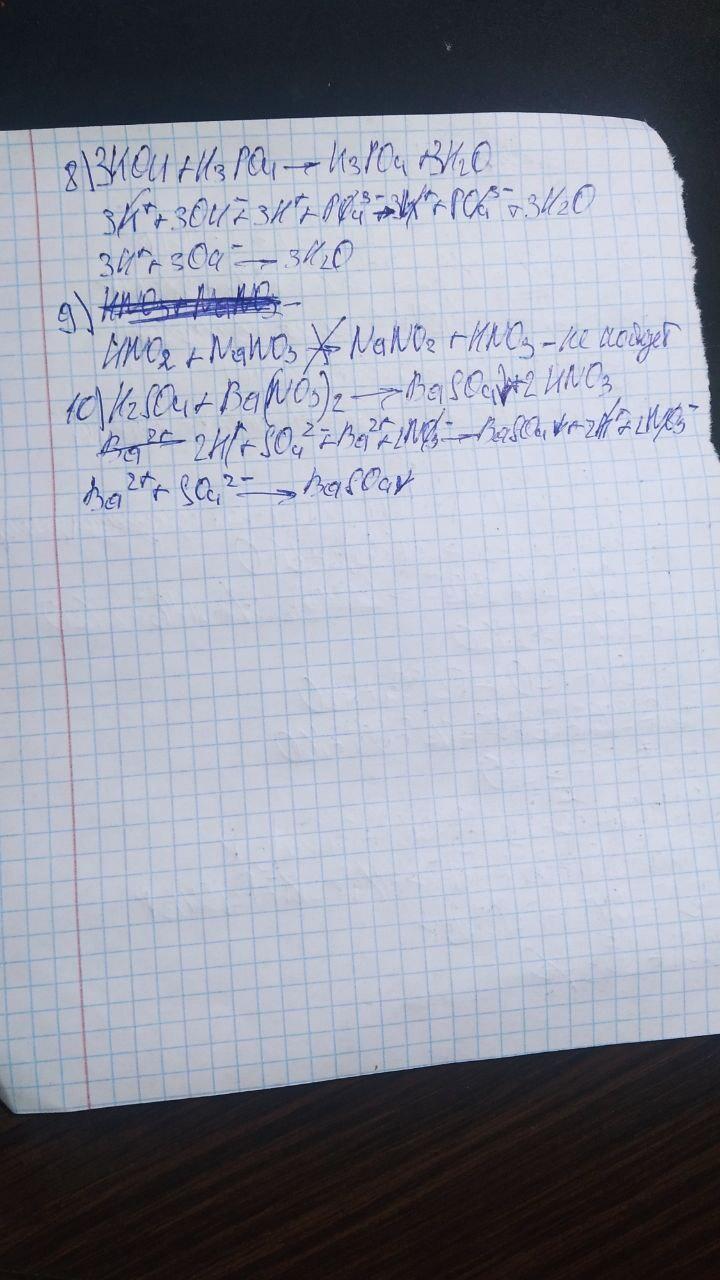 8) 3KOH + H3PO4 → K3PO4 + 3H2O
3K⁺ + 3OH⁻ + 3H⁺ + PO4³⁻ → 3K⁺ + PO4³⁻ + 3H2O
3H⁺ + 3OH⁻ → 3H2O
9)
HNO2 + NaNO3 ⇸ NaNO2 + HNO3 - не пойдет
10) H2SO4 + Ba(NO3)2 → BaSO4↓ + 2HNO3
2H⁺ + SO4²⁻ + Ba²⁺ + 2NO3⁻ → BaSO4↓ + 2H⁺ + 2NO3⁻
Ba²⁺ + SO4²⁻ → BaSO4↓